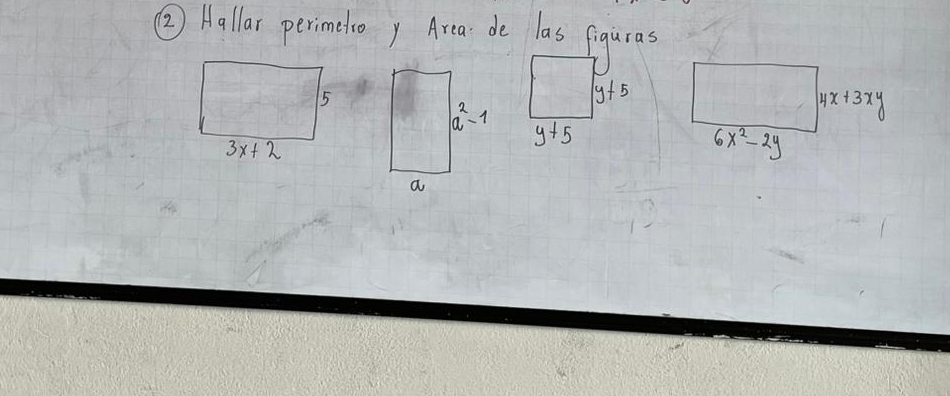 ② Hallar perimetro y Area de las figuras
5
3x+2
a²-1
a
y+5
y+5
4x+3xy
6x²-2y